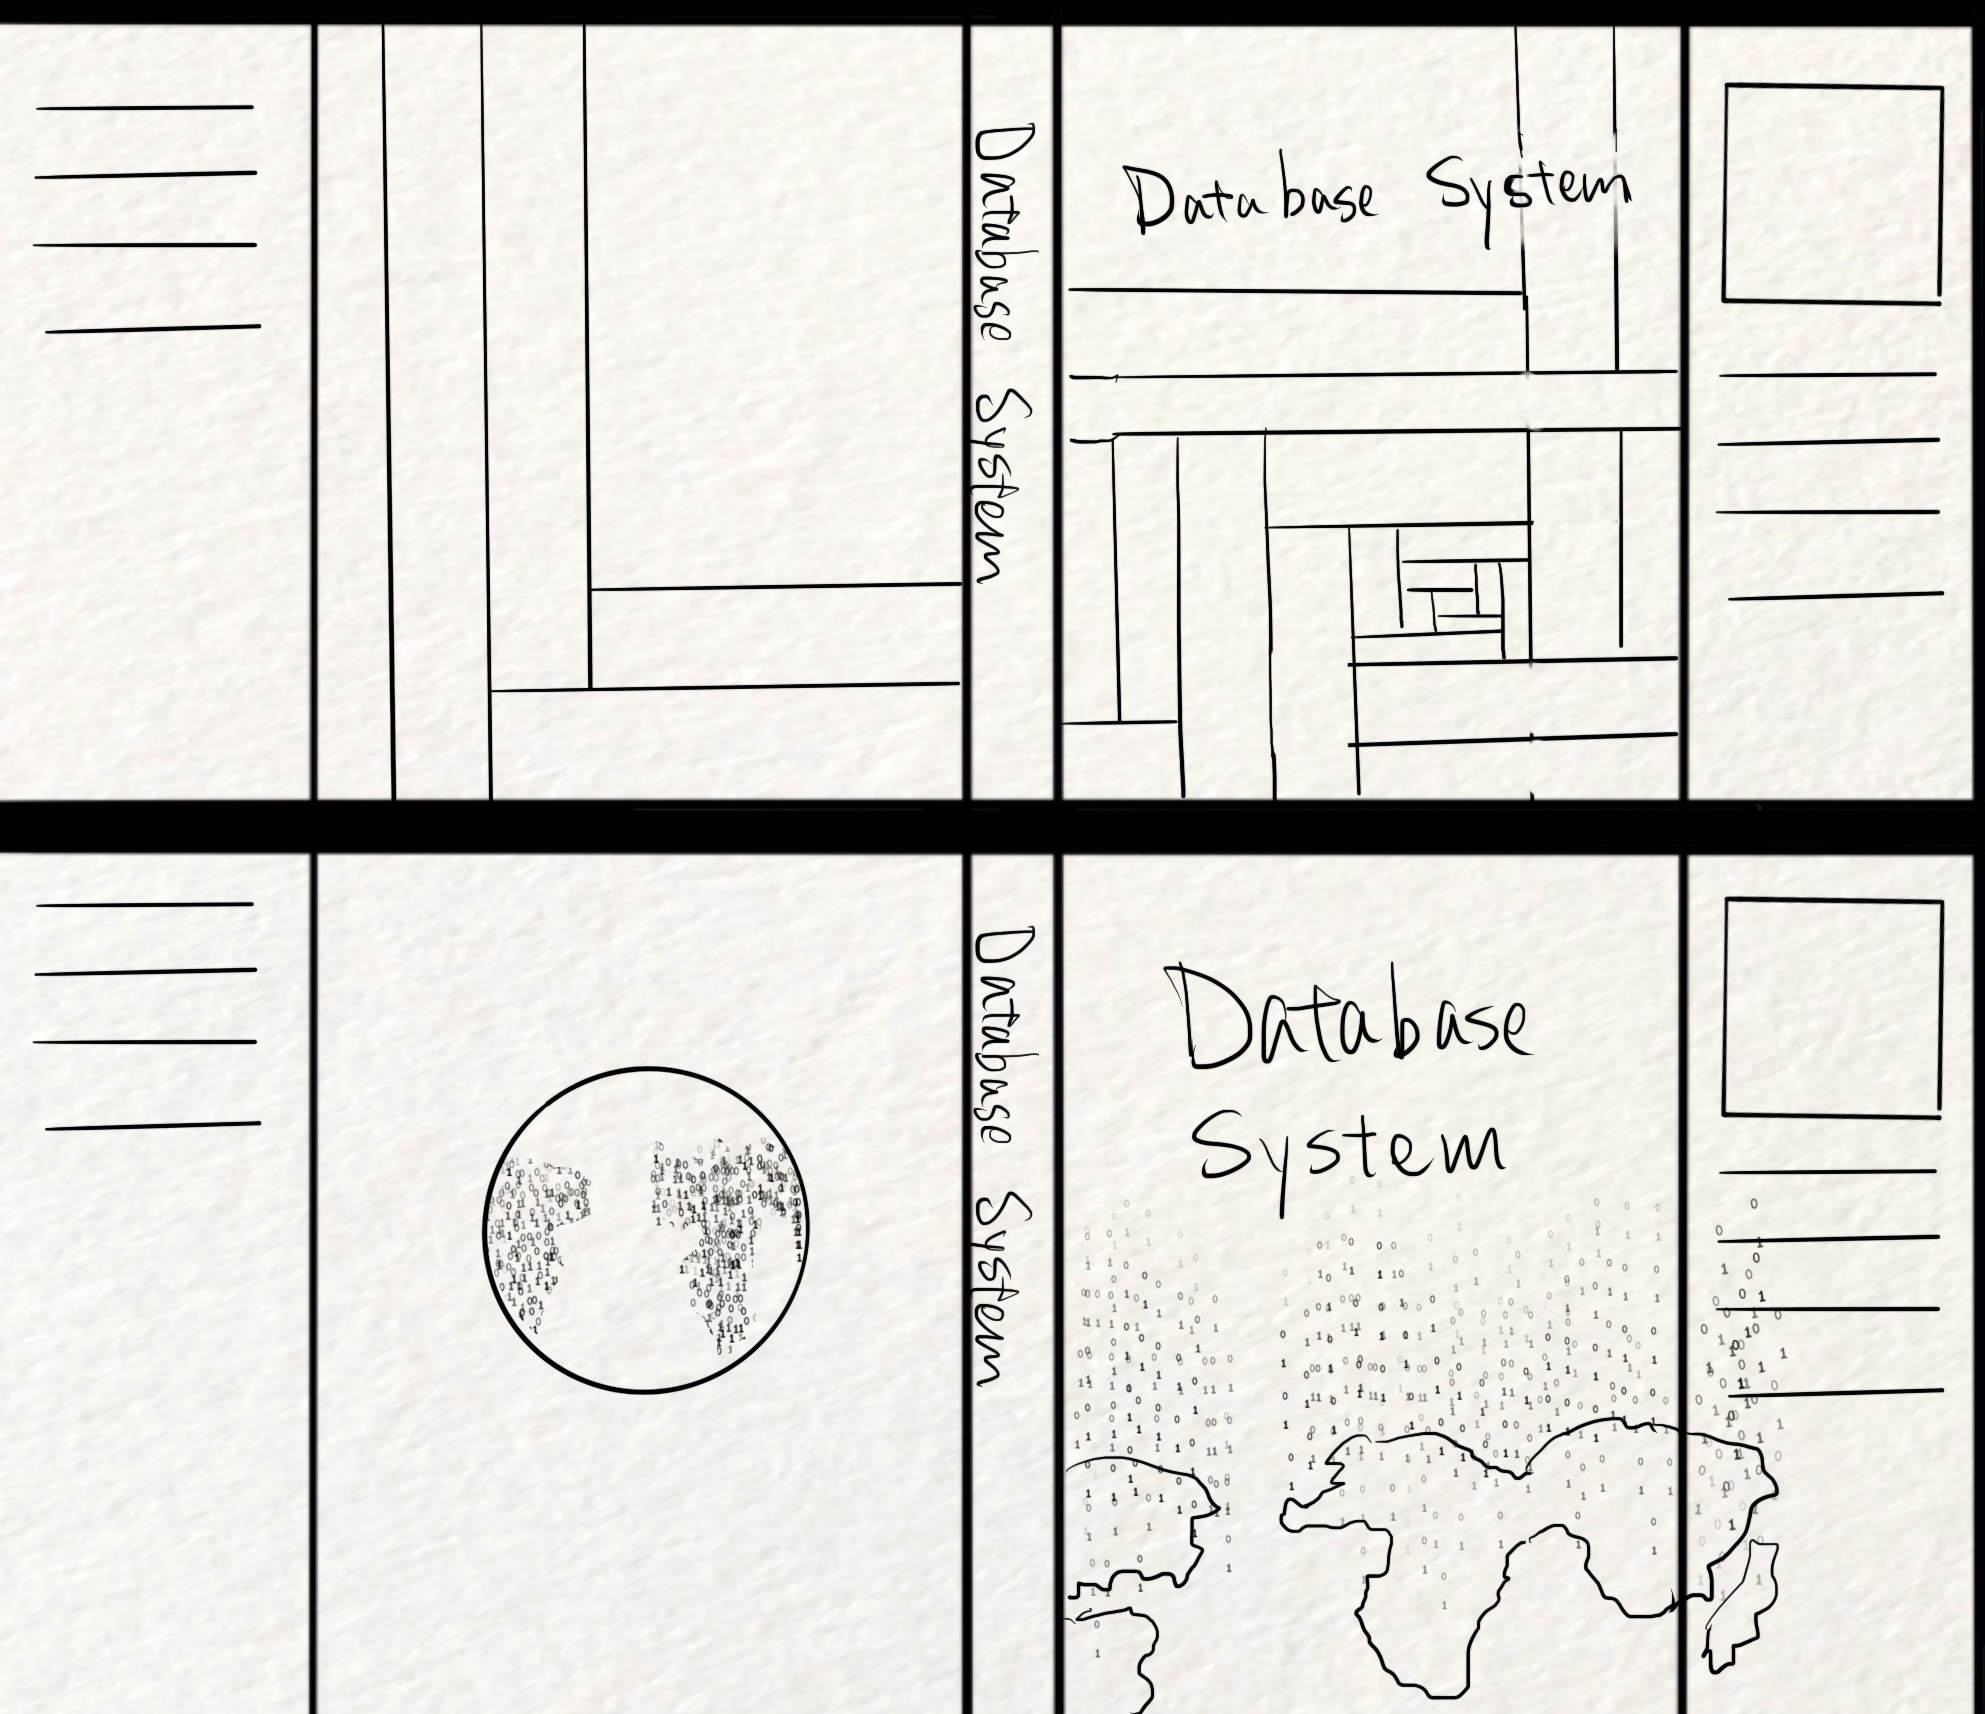 Database System
Database System
Database System
Database
System